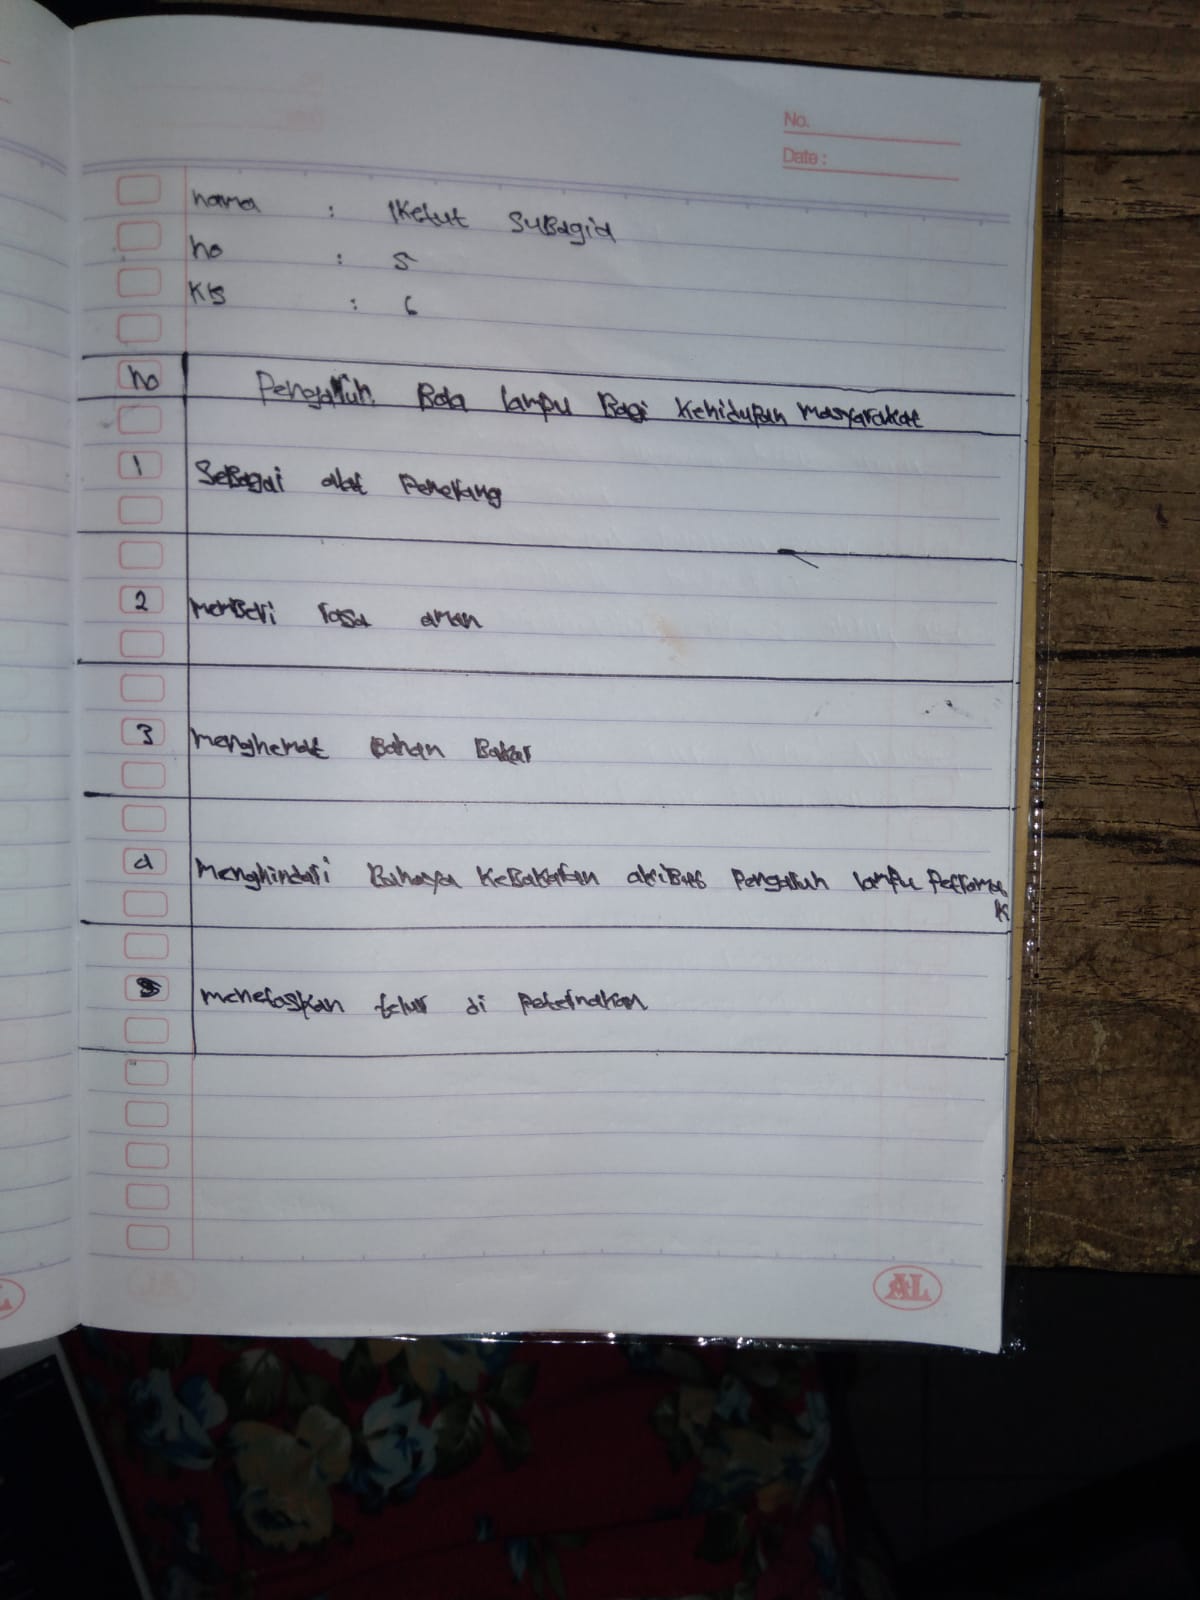 No.
Date :
nama : IKetut SuBagia
no : 5
Kls : 6
no Pengaruh Bola lampu Bagi Kehidupan masyarakat
1 SeBagai alat Penerang
2 memBeri rasa aman
3 menghemat Bahan Bakar
4 Menghindari Bahaya KeBakaran akiBat Pengaruh lampu Petroma
k
5 menetaskan telur di Peternakan
AL